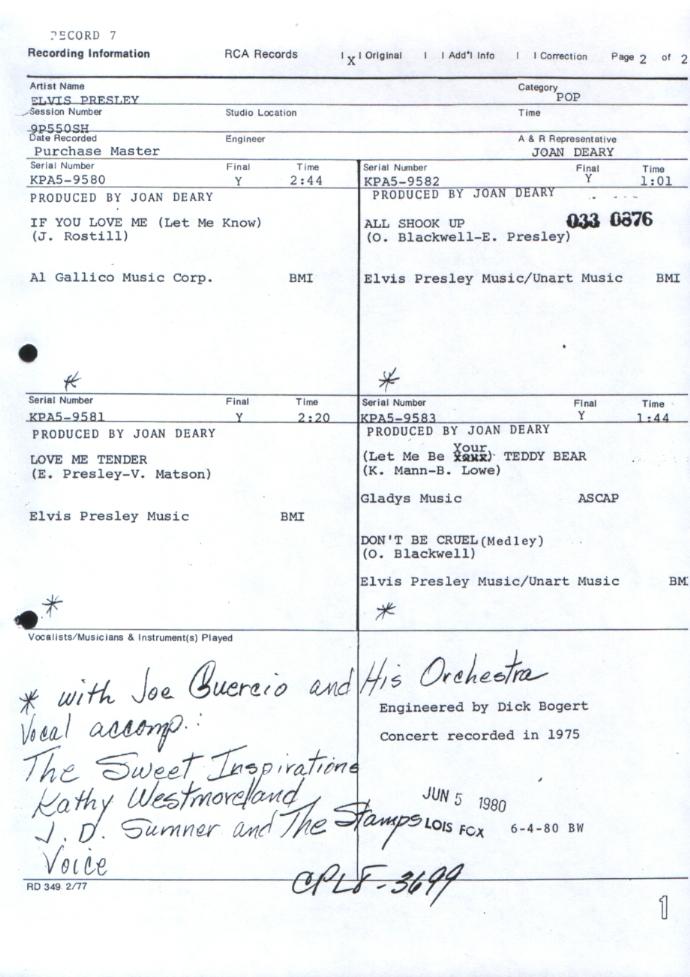 RECORD 7
Recording Information RCA Records |X| Original | | Add'l Info | | Correction Page 2 of 2
Artist Name Category
ELVIS PRESLEY POP
Session Number Studio Location Time
9P550SH
Date Recorded Engineer A & R Representative
Purchase Master JOAN DEARY
Serial Number Final Time
KPA5-9580 Y 2:44
PRODUCED BY JOAN DEARY
IF YOU LOVE ME (Let Me Know)
(J. Rostill)
Al Gallico Music Corp. BMI
*
Serial Number Final Time
KPA5-9582 Y 1:01
PRODUCED BY JOAN DEARY
ALL SHOOK UP 033 0876
(O. Blackwell-E. Presley)
Elvis Presley Music/Unart Music BMI
*
Serial Number Final Time
KPA5-9581 Y 2:20
PRODUCED BY JOAN DEARY
LOVE ME TENDER
(E. Presley-V. Matson)
Elvis Presley Music BMI
*
Serial Number Final Time
KPA5-9583 Y 1:44
PRODUCED BY JOAN DEARY
(Let Me Be Your) TEDDY BEAR
(K. Mann-B. Lowe)
Gladys Music ASCAP
DON'T BE CRUEL (Medley)
(O. Blackwell)
Elvis Presley Music/Unart Music BM
*
Vocalists/Musicians & Instrument(s) Played
* with Joe Guercio and His Orchestra
Engineered by Dick Bogert
Vocal accomp.:
Concert recorded in 1975
The Sweet Inspirations
Kathy Westmoreland
JUN 5 1980
J. D. Sumner and The Stamps
LOIS FOX 6-4-80 BW
Voice
CPL8-3699
RD 349 2/77
1